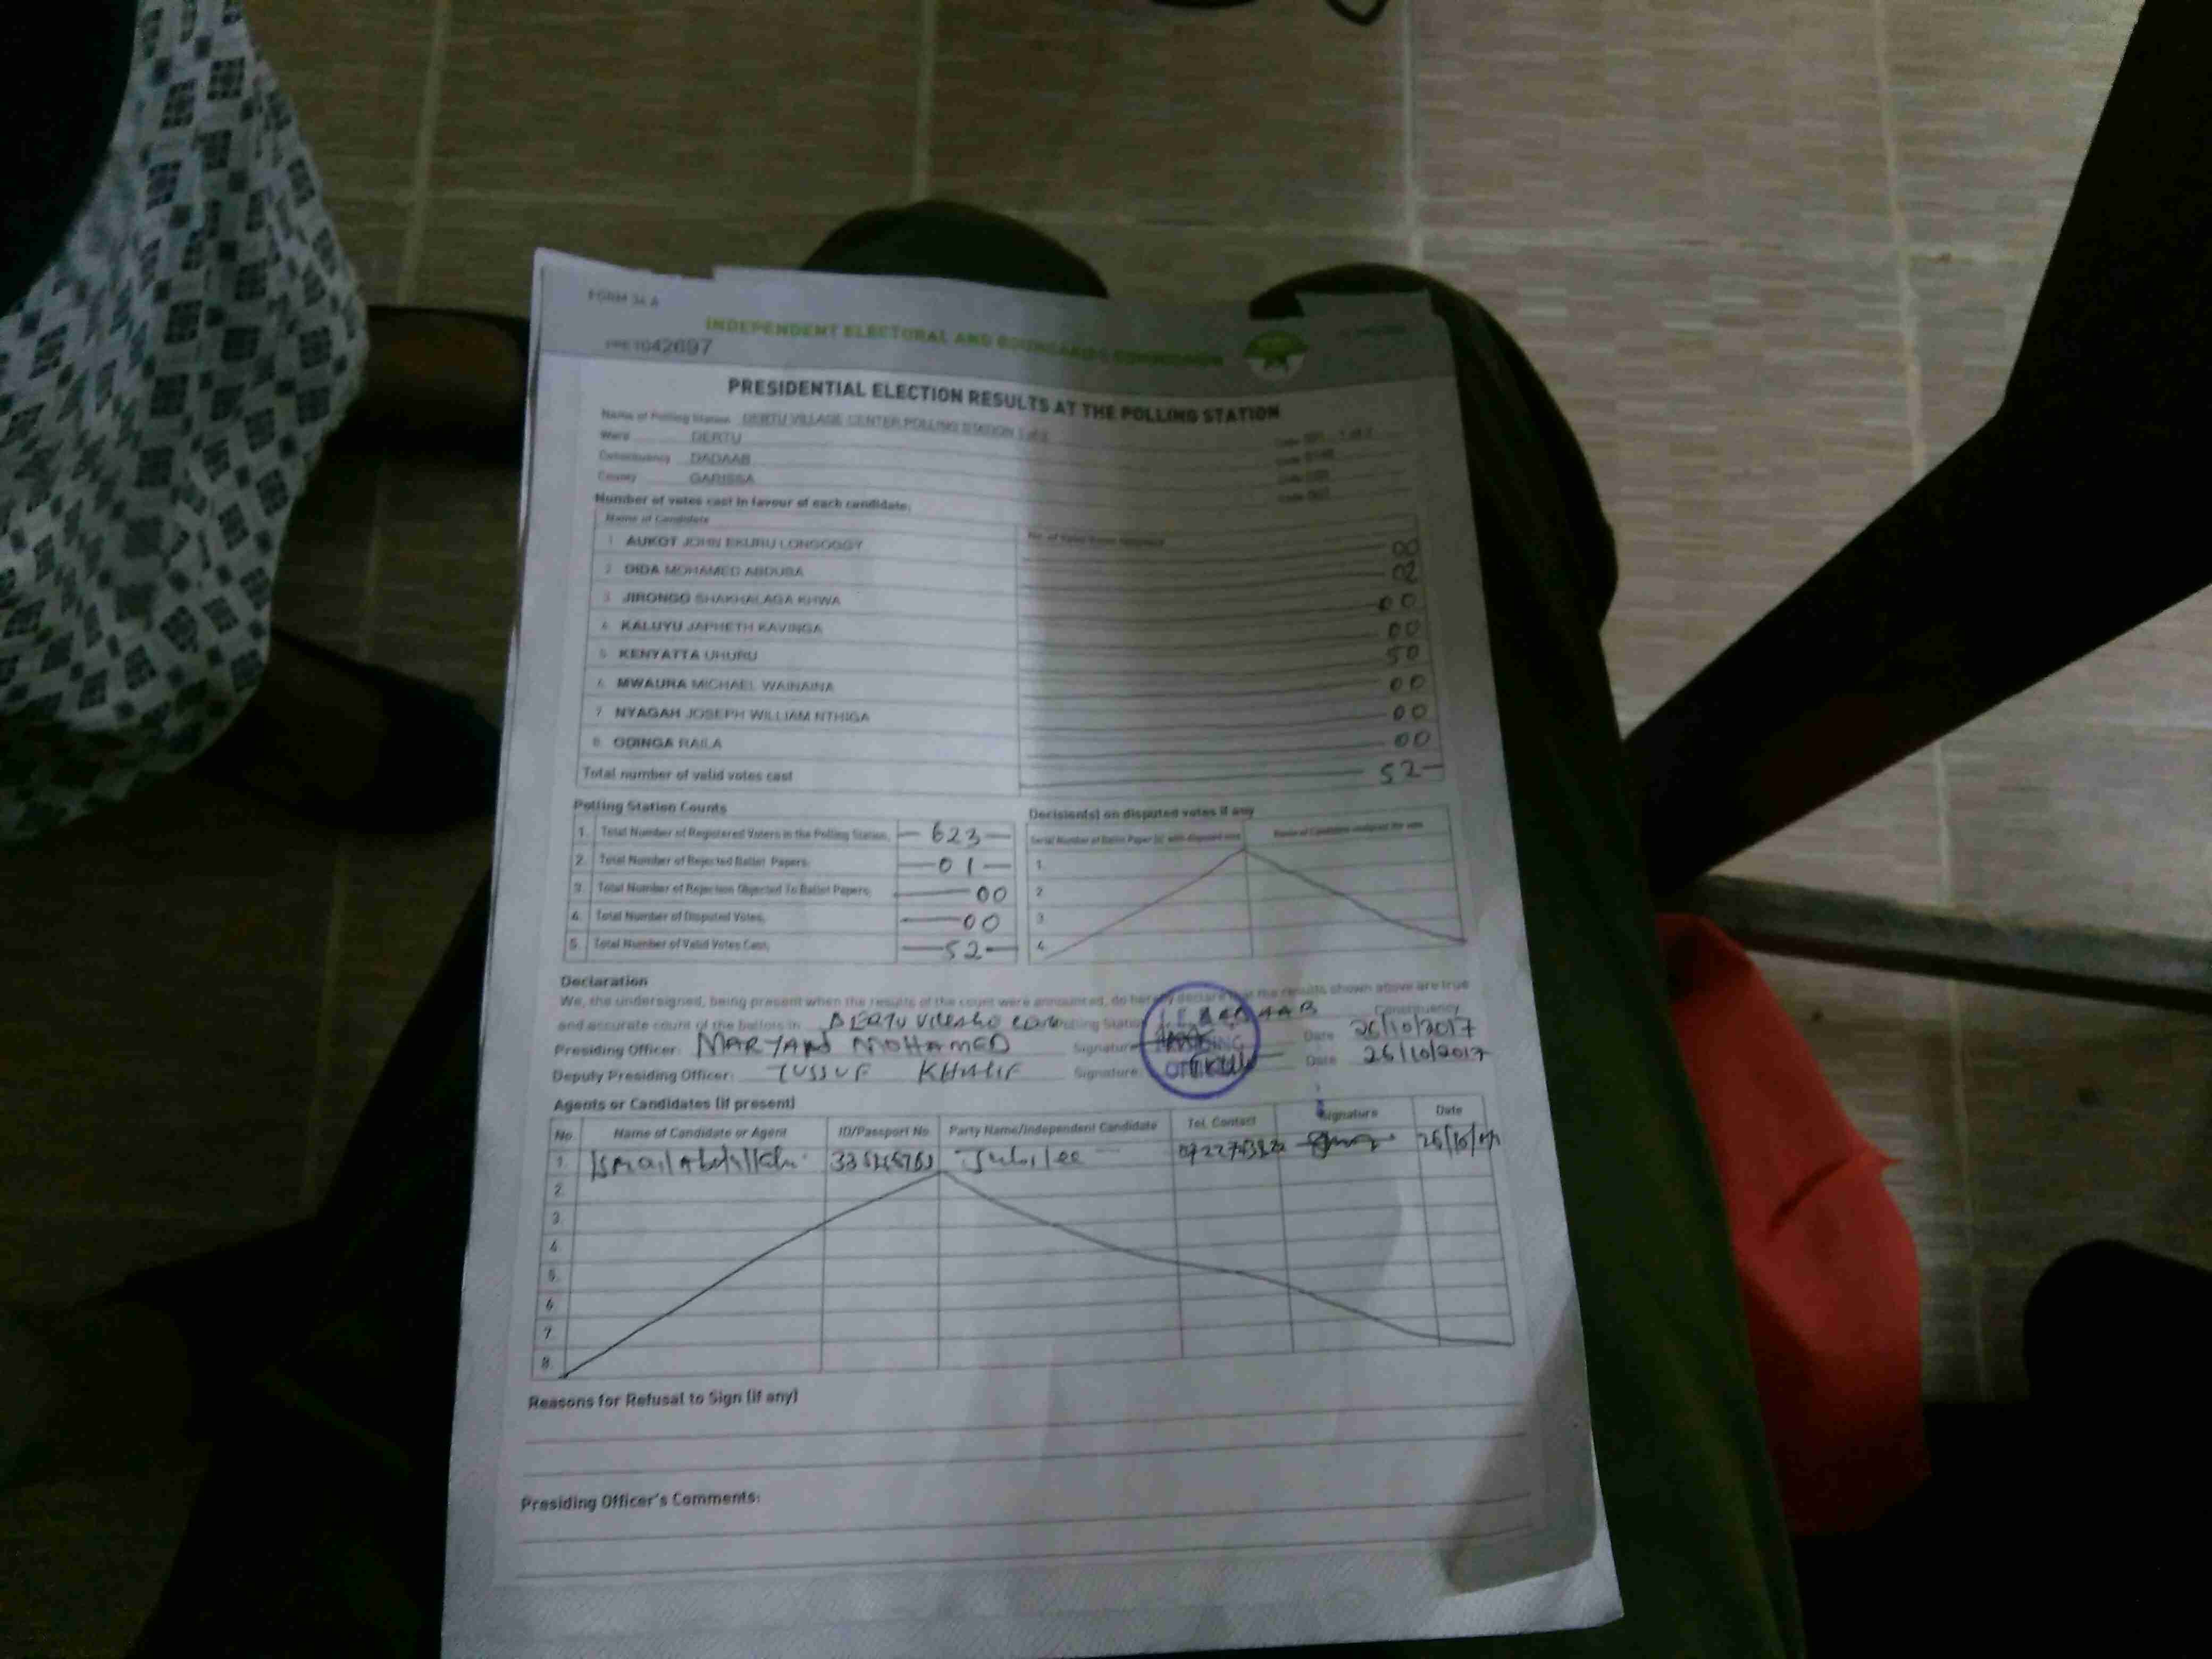 FORM 34 A
INDEPENDENT ELECTORAL AND BOUNDARIES COMMISSION
1042697
PRESIDENTIAL ELECTION RESULTS AT THE POLLING STATION
Name of Polling Station DERTU VILLAGE CENTER POLLING STATION
Ward DERTU
Constituency DADAAB
County GARISSA
Number of votes cast in favour of each candidate:
Name of Candidate
1. AUKOT JOHN EKURU LONGOGGY 00
2. DIDA MOHAMED ABDUBA 02
3. JIRONGO SHAKHALAGA KHWA 00
4. KALUYU JAPHETH KAVINGA 00
5. KENYATTA UHURU 50
6. MWAURA MICHAEL WAINAINA 00
7. NYAGAH JOSEPH WILLIAM NTHIGA 00
8. ODINGA RAILA 00
Total number of valid votes cast 52
Polling Station Counts
1. Total Number of Registered Voters in the Polling Station; 623
2. Total Number of Rejected Ballot Papers; 01
3. Total Number of Rejection Objected To Ballot Papers; 00
4. Total Number of Disputed Votes; 00
5. Total Number of Valid Votes Cast; 52
Decision(s) on disputed votes if any
1.
2.
3.
4.
Declaration
We, the undersigned, being present when the results of the count were announced, do hereby declare that the results shown above are true
and accurate count of the ballots in Polling Station Constituency
Presiding Officer: MARYAN MOHAMED Signature Date 26/10/2017
Deputy Presiding Officer: YUSSUF KHALIF Signature: Date 26/10/2017
Agents or Candidates (if present)
No. Name of Candidate or Agent ID/Passport No. Party Name/Independent Candidate Tel. Contact Signature Date
1. Jubilee
2.
3.
4.
5.
6.
7.
8.
Reasons for Refusal to Sign (if any)
Presiding Officer's Comments: